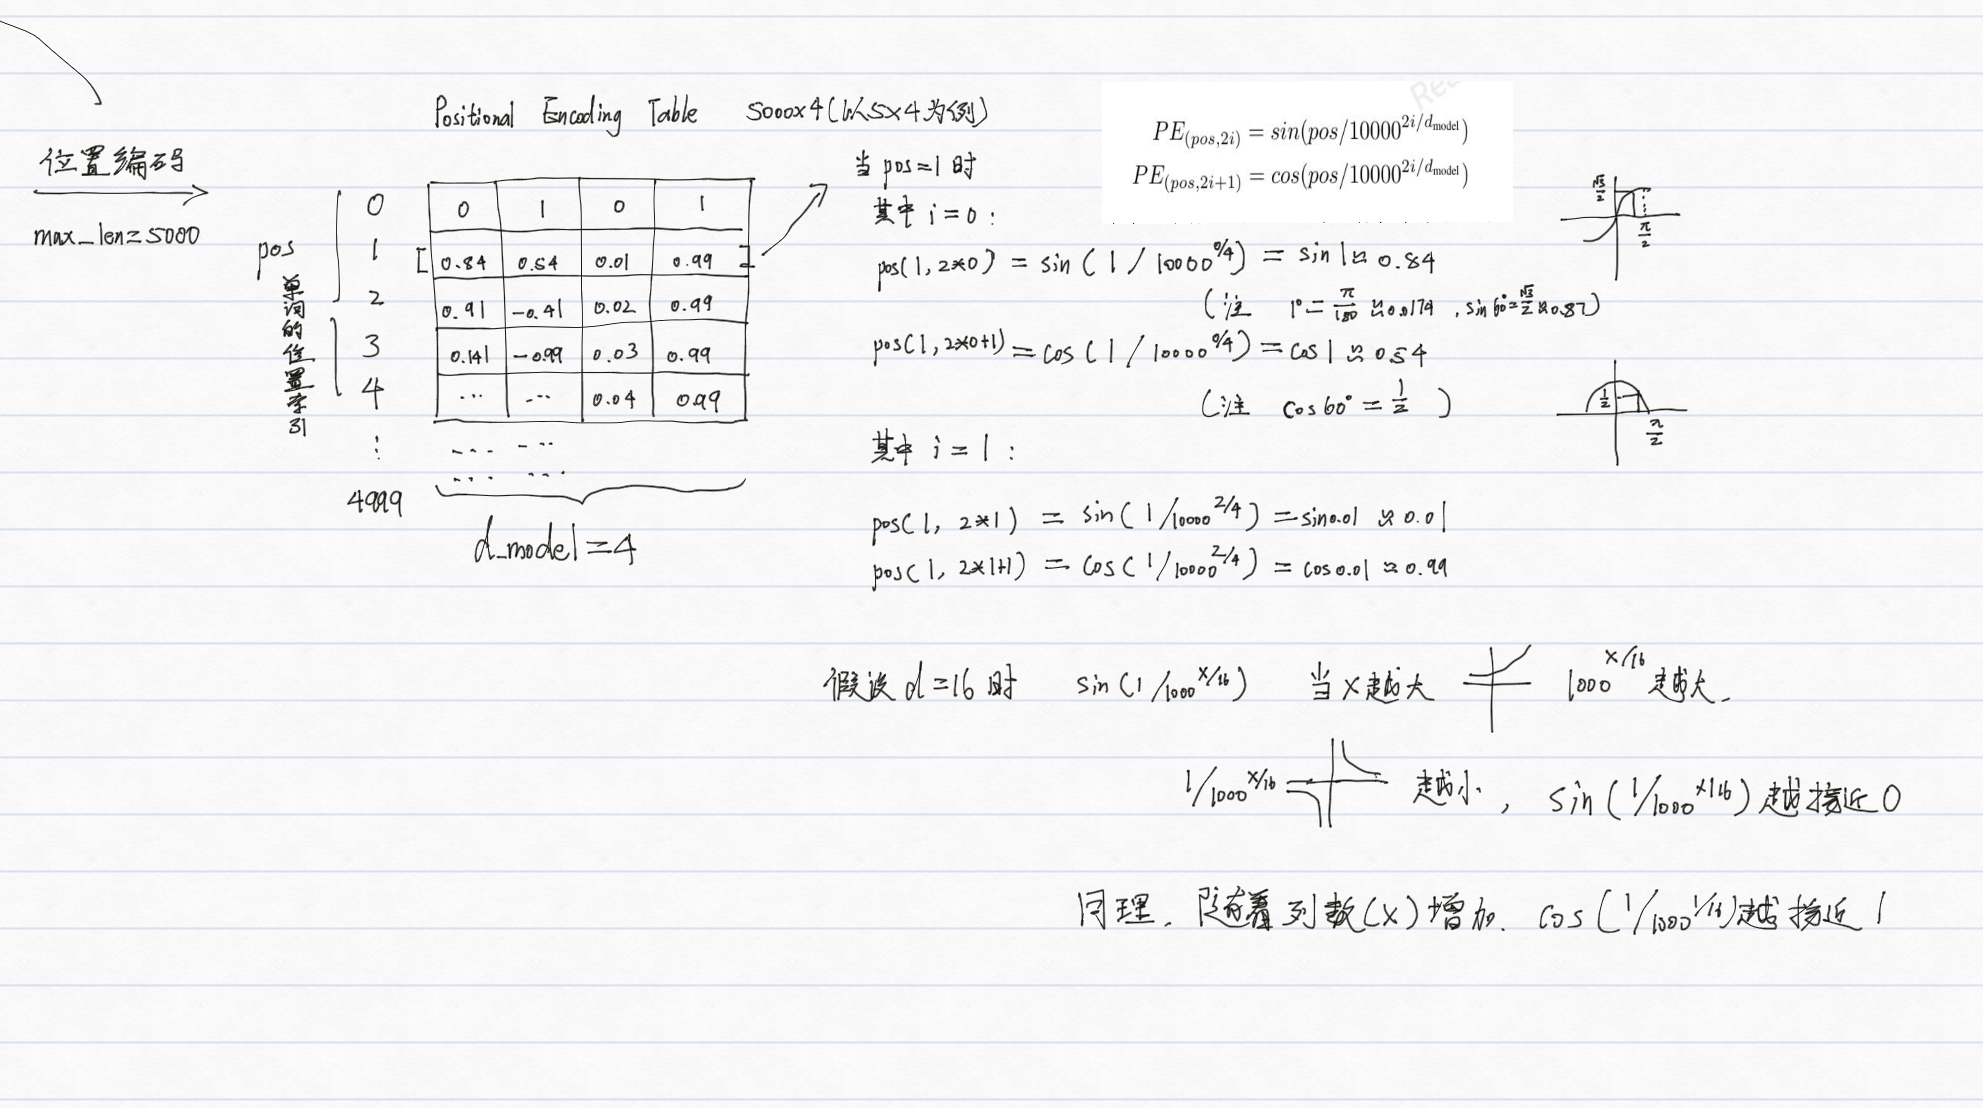 Positional Encoding Table 5000x4(以5x4为例)
位置编码
max_len=5000
pos
单词的位置索引
0 0 1 0 1
1 [ 0.84 0.54 0.01 0.99 ]
2 0.91 -0.41 0.02 0.99
3 0.141 -0.99 0.03 0.99
4 ... ... 0.04 0.99
⋮ ... ...
... ...
4999
d_model=4
PE(pos,2i) = sin(pos/10000^{2i/d_model})
PE(pos,2i+1) = cos(pos/10000^{2i/d_model})
当 pos=1 时
其中 i=0:
pos(1, 2*0) = sin(1/10000^{0/4}) = sin1 ≈ 0.84
(注 1°= π/180 ≈ 0.0174 , sin60°= √3/2 ≈ 0.87)
√3/2
π/2
pos(1, 2*0+1) = cos(1/10000^{0/4}) = cos1 ≈ 0.54
(注 cos60° = 1/2 )
1/2
π/2
其中 i=1:
pos(1, 2*1) = sin(1/10000^{2/4}) = sin0.01 ≈ 0.01
pos(1, 2*1+1) = cos(1/10000^{2/4}) = cos0.01 ≈ 0.99
假设d=16时 sin(1/1000^{x/16}) 当X越大 1000^{x/16} 越大.
1/1000^{x/16} 越小, sin(1/1000^{x/16})越接近0
同理. 随着列数(X)增加. cos(1/1000^{1/16})越接近1